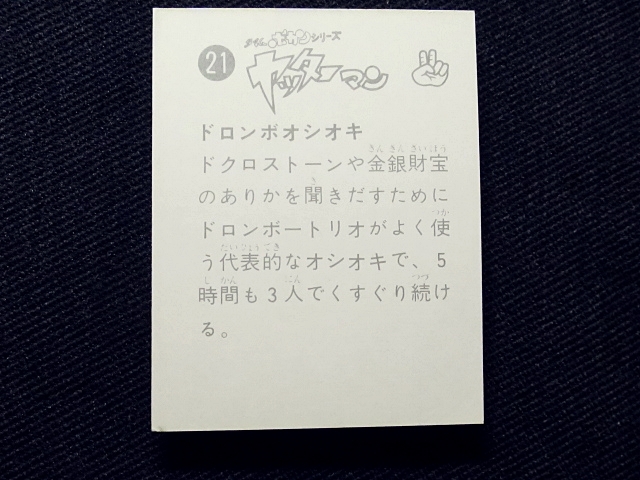 21
タイムボカンシリーズ
ヤッターマン
ドロンボオシオキ
ドクロストーンや金銀財宝
のありかを聞きだすために
ドロンボートリオがよく使
う代表的なオシオキで、5
時間も3人でくすぐり続け
る。